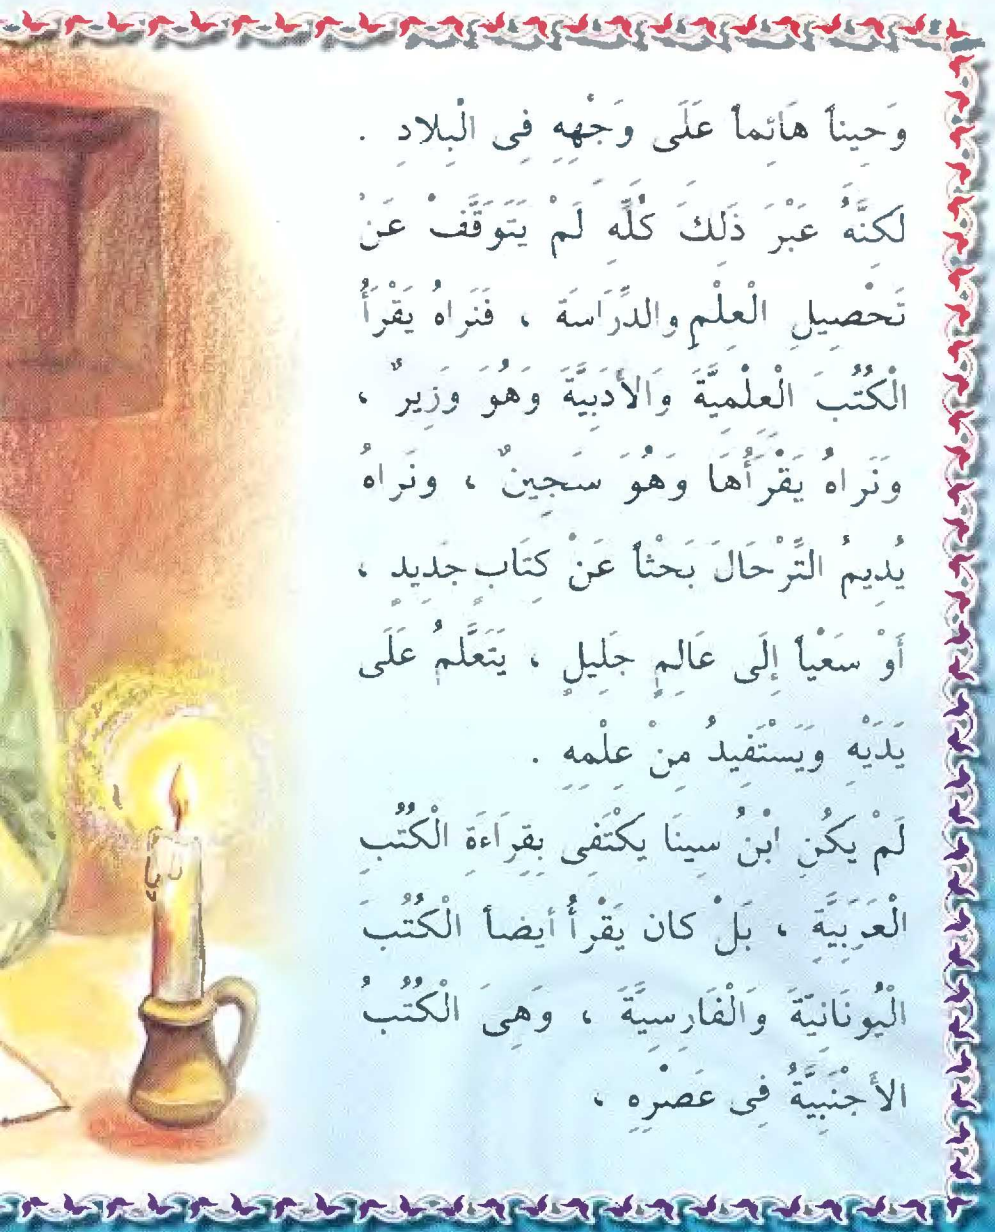 وَحِيناً هَائِماً عَلَى وَجْهِهِ فِى الْبِلادِ .
لَكِنَّهُ عَبْرَ ذَلِكَ كُلِّهِ لَمْ يَتَوَقَّفْ عَنْ
تَحْصِيلِ الْعِلْمِ والدِّرَاسَةِ ، فَنَراهُ يَقْرَأُ
الْكُتُبَ الْعِلْمِيَّةَ وَالأَدَبِيَّةَ وَهُوَ وَزِيرٌ ،
وَنَراهُ يَقْرَأُهَا وَهُوَ سَجِينٌ ، ونَراهُ
يُدِيمُ التِّرْحَالَ بَحْثاً عَنْ كِتَابٍ جَدِيدٍ ،
أَوْ سَعْياً إِلَى عَالِمٍ جَلِيلٍ ، يَتَعَلَّمُ عَلَى
يَدَيْهِ وَيَسْتَفِيدُ مِنْ عِلْمِهِ .
لَمْ يَكُنِ ابْنُ سِينَا يَكْتَفِى بِقِرَاءَةِ الْكُتُبِ
الْعَرَبِيَّةِ ، بَلْ كان يَقْرأُ أيضاً الْكُتُبَ
الْيُونَانِيَّةَ وَالْفَارِسِيَّةَ ، وَهِىَ الْكُتُبُ
الأَجْنَبِيَّةُ فِى عَصْرِهِ ،